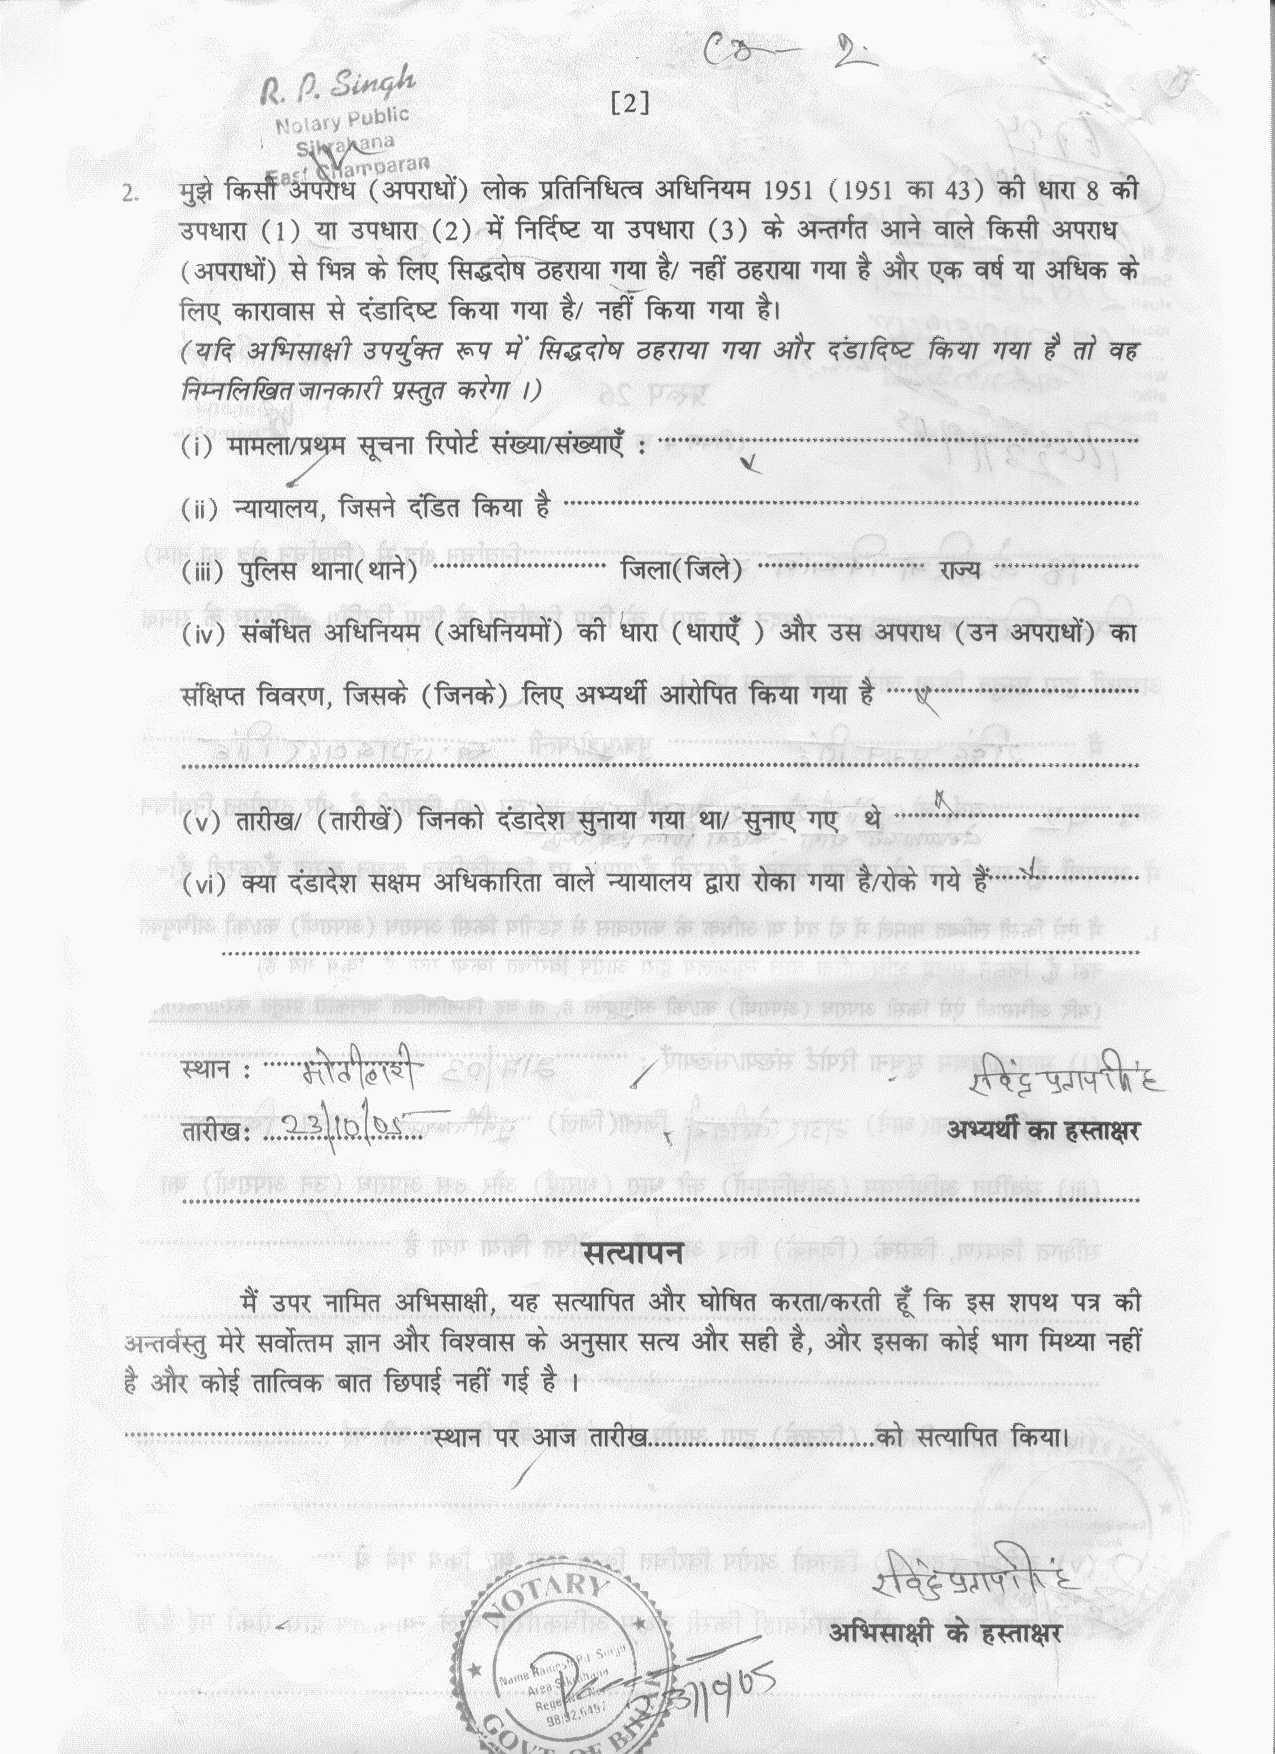 R. P. Singh
Notary Public
Sikrahana
East Champaran
[2]
2. मुझे किसी अपराध (अपराधों) लोक प्रतिनिधित्व अधिनियम 1951 (1951 का 43) की धारा 8 की
उपधारा (1) या उपधारा (2) में निर्दिष्ट या उपधारा (3) के अन्तर्गत आने वाले किसी अपराध
(अपराधों) से भिन्न के लिए सिद्धदोष ठहराया गया है/ नहीं ठहराया गया है और एक वर्ष या अधिक के
लिए कारावास से दंडादिष्ट किया गया है/ नहीं किया गया है।
(यदि अभिसाक्षी उपर्युक्त रूप में सिद्धदोष ठहराया गया और दंडादिष्ट किया गया है तो वह
निम्नलिखित जानकारी प्रस्तुत करेगा ।)
(i) मामला/प्रथम सूचना रिपोर्ट संख्या/संख्याएँ :
(ii) न्यायालय, जिसने दंडित किया है
(iii) पुलिस थाना(थाने) जिला(जिले) राज्य
(iv) संबंधित अधिनियम (अधिनियमों) की धारा (धाराएँ ) और उस अपराध (उन अपराधों) का
संक्षिप्त विवरण, जिसके (जिनके) लिए अभ्यर्थी आरोपित किया गया है
(v) तारीख/ (तारीखें) जिनको दंडादेश सुनाया गया था/ सुनाए गए थे
(vi) क्या दंडादेश सक्षम अधिकारिता वाले न्यायालय द्वारा रोका गया है/रोके गये हैं
स्थान : मोतीहारी रविंद्र प्रताप सिंह
तारीख: 23/10/05 अभ्यर्थी का हस्ताक्षर
सत्यापन
मैं उपर नामित अभिसाक्षी, यह सत्यापित और घोषित करता/करती हूँ कि इस शपथ पत्र की
अन्तर्वस्तु मेरे सर्वोत्तम ज्ञान और विश्वास के अनुसार सत्य और सही है, और इसका कोई भाग मिथ्या नहीं
है और कोई तात्विक बात छिपाई नहीं गई है ।
स्थान पर आज तारीख को सत्यापित किया।
रविंद्र प्रताप सिंह
अभिसाक्षी के हस्ताक्षर
NOTARY
23/10/05
GOVT. OF BIHAR